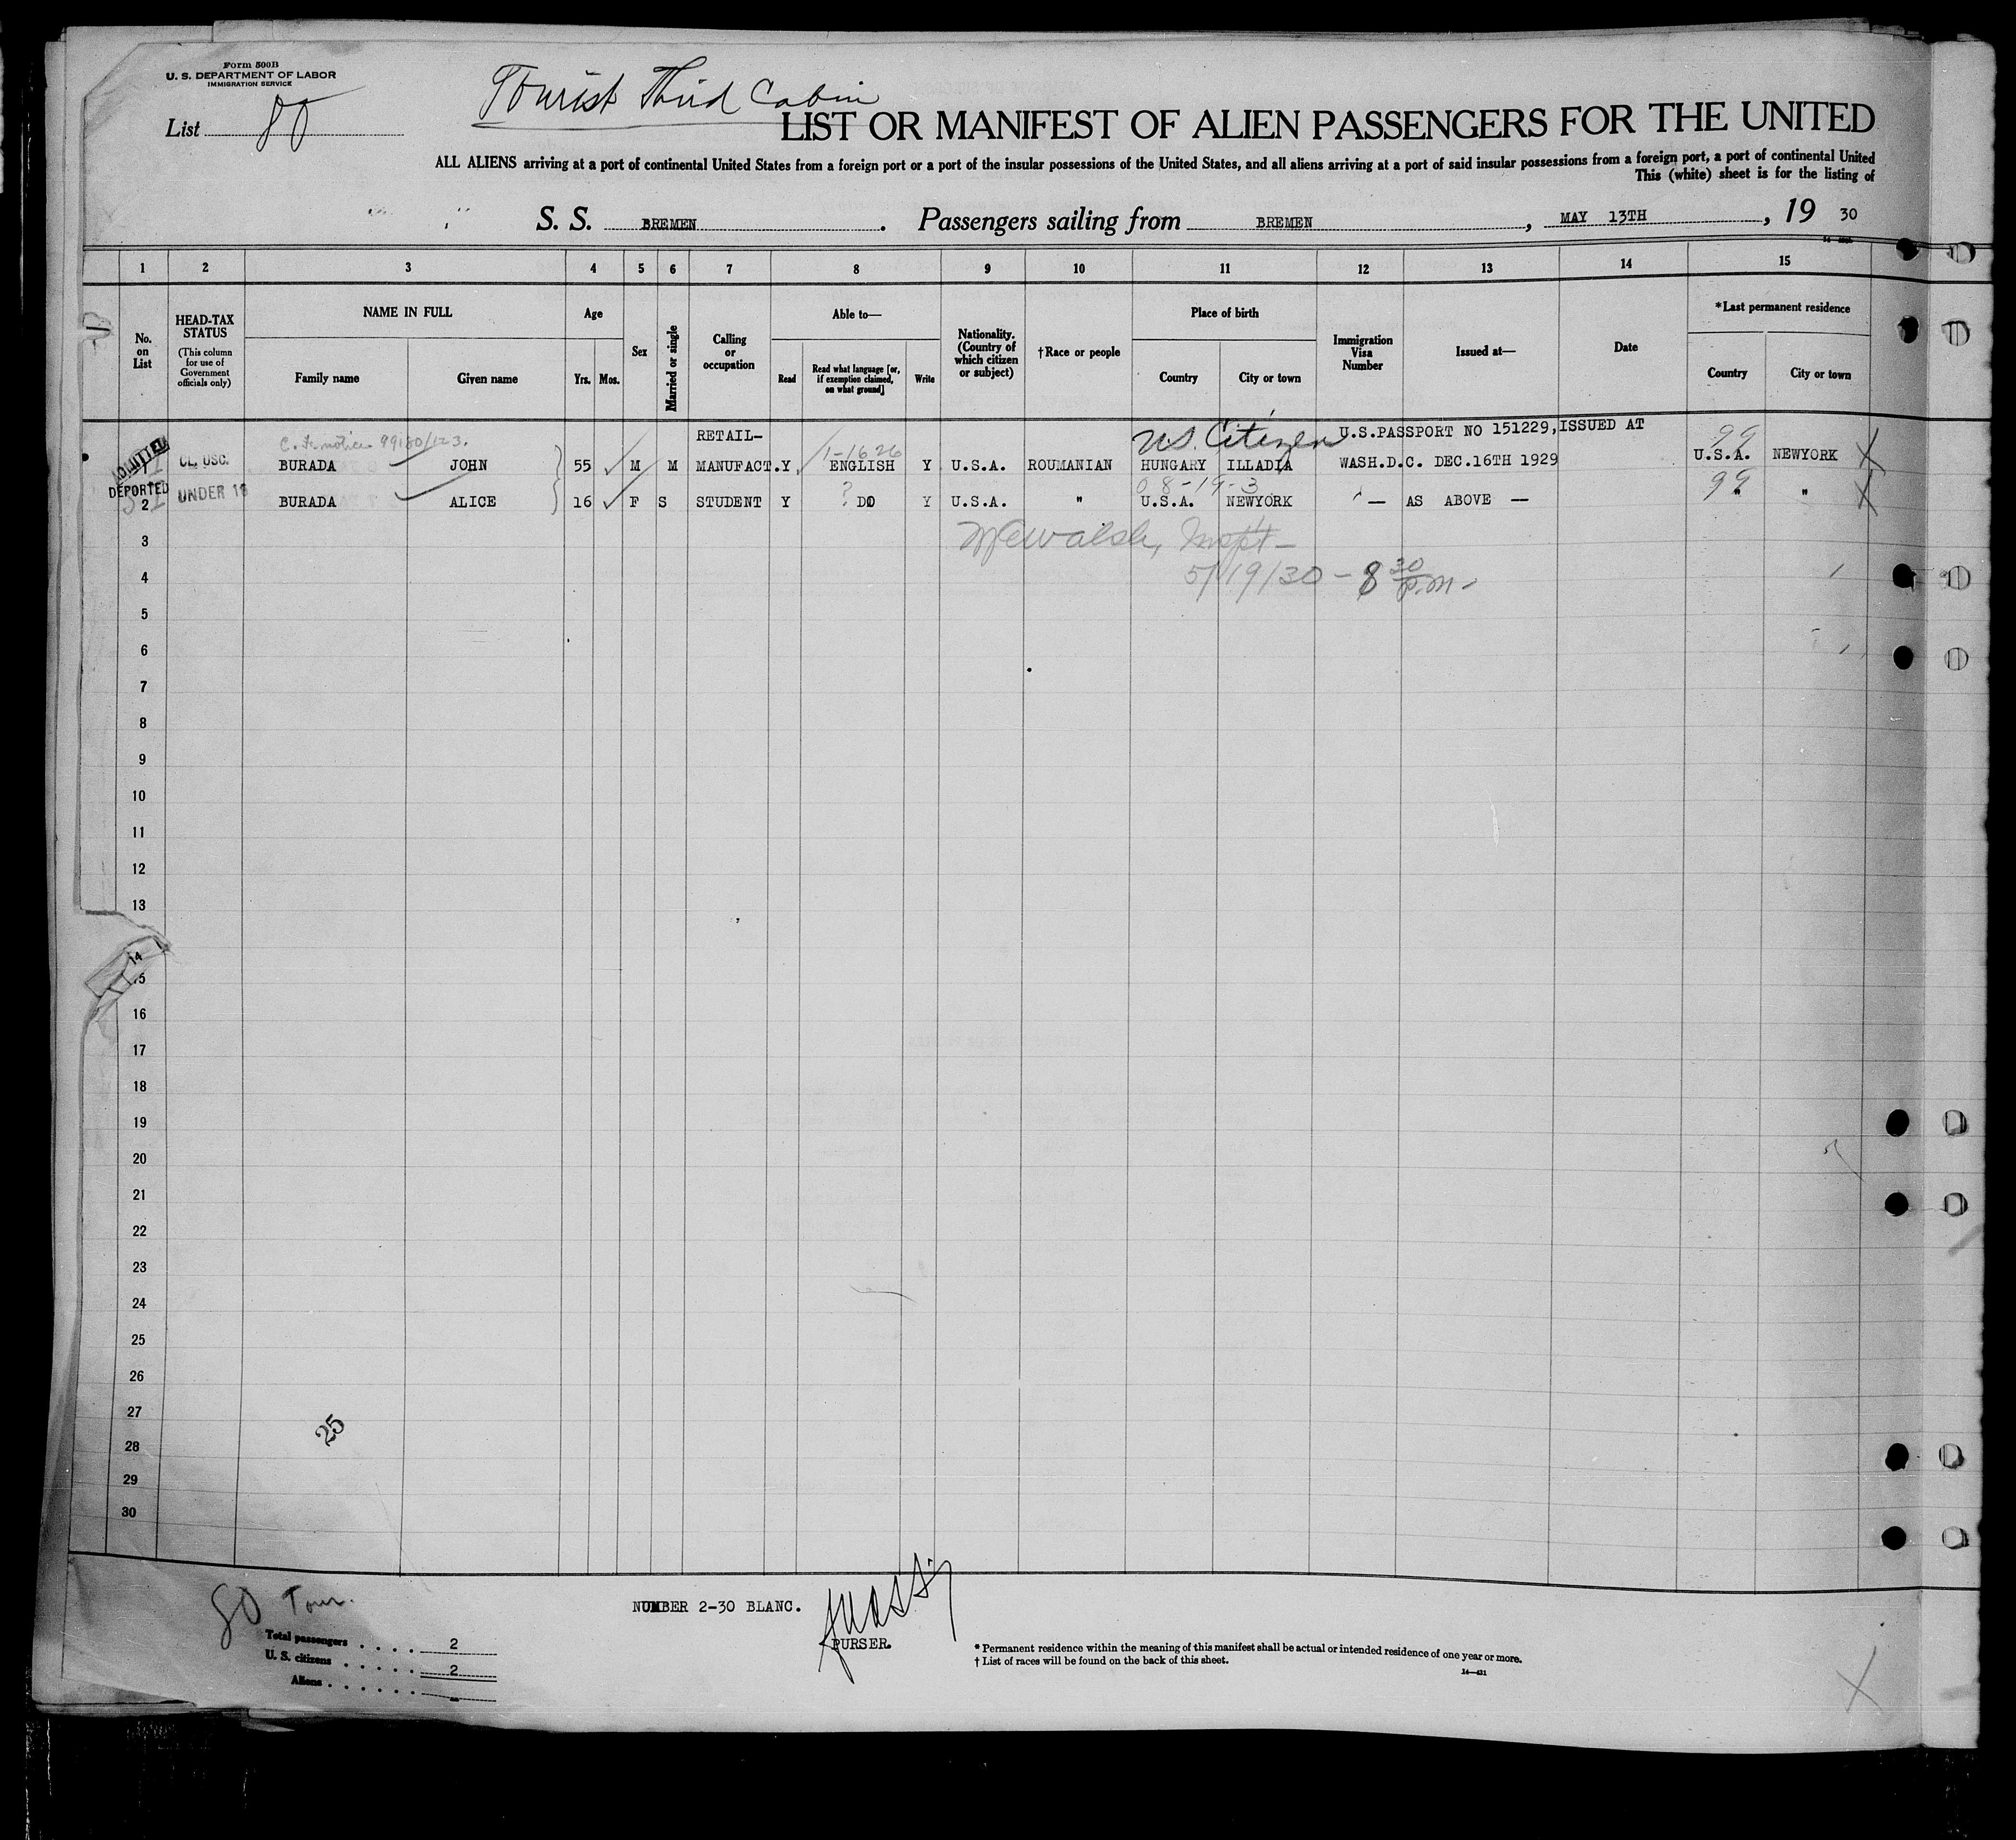 Form 500B
U. S. DEPARTMENT OF LABOR
IMMIGRATION SERVICE
List 80
Tourist Third Cabin
LIST OR MANIFEST OF ALIEN PASSENGERS FOR THE UNITED
ALL ALIENS arriving at a port of continental United States from a foreign port or a port of the insular possessions of the United States, and all aliens arriving at a port of said insular possessions from a foreign port, a port of continental United
This (white) sheet is for the listing of
S. S. BREMEN. Passengers sailing from BREMEN, MAY 13TH, 19 30
1 2 3 4 5 6 7 8 9 10 11 12 13 14 15
No. on List
HEAD-TAX STATUS (This column for use of Government officials only)
NAME IN FULL
Family name Given name
Age
Yrs. Mos.
Sex
Married or single
Calling or occupation
Able to—
Read Read what language [or, if exemption claimed, on what ground] Write
Nationality. (Country of which citizen or subject)
†Race or people
Place of birth
Country City or town
Immigration Visa Number
Issued at—
Date
*Last permanent residence
Country City or town
RETAIL- US Citizen U.S.PASSPORT NO 151229,ISSUED AT 99
ADMITTED C. notice 99180/123. 1-1626
CL. USC. BURADA JOHN 55 M M MANUFACT. Y ENGLISH Y U.S.A. ROUMANIAN HUNGARY ILLADIA WASH.D.C. DEC.16TH 1929 U.S.A. NEWYORK X
DEPORTED ? 08-19-3 99
2 UNDER 16 BURADA ALICE 16 F S STUDENT Y DO Y U.S.A. " U.S.A. NEWYORK — AS ABOVE — " " X
3 Walsh, Inspt-
4 5/19/30 - 8 30 p.m-
5
6
7
8
9
10
11
12
13
14
15
16
17
18
19
20
21
22
23
24
25
26
27
25
28
29
30
80 Tour.
NUMBER 2-30 BLANC.
PURSER.
Total passengers . . . . 2
U. S. citizens . . . . . 2
Aliens . . . . . . –
* Permanent residence within the meaning of this manifest shall be actual or intended residence of one year or more.
† List of races will be found on the back of this sheet.
14—431
X